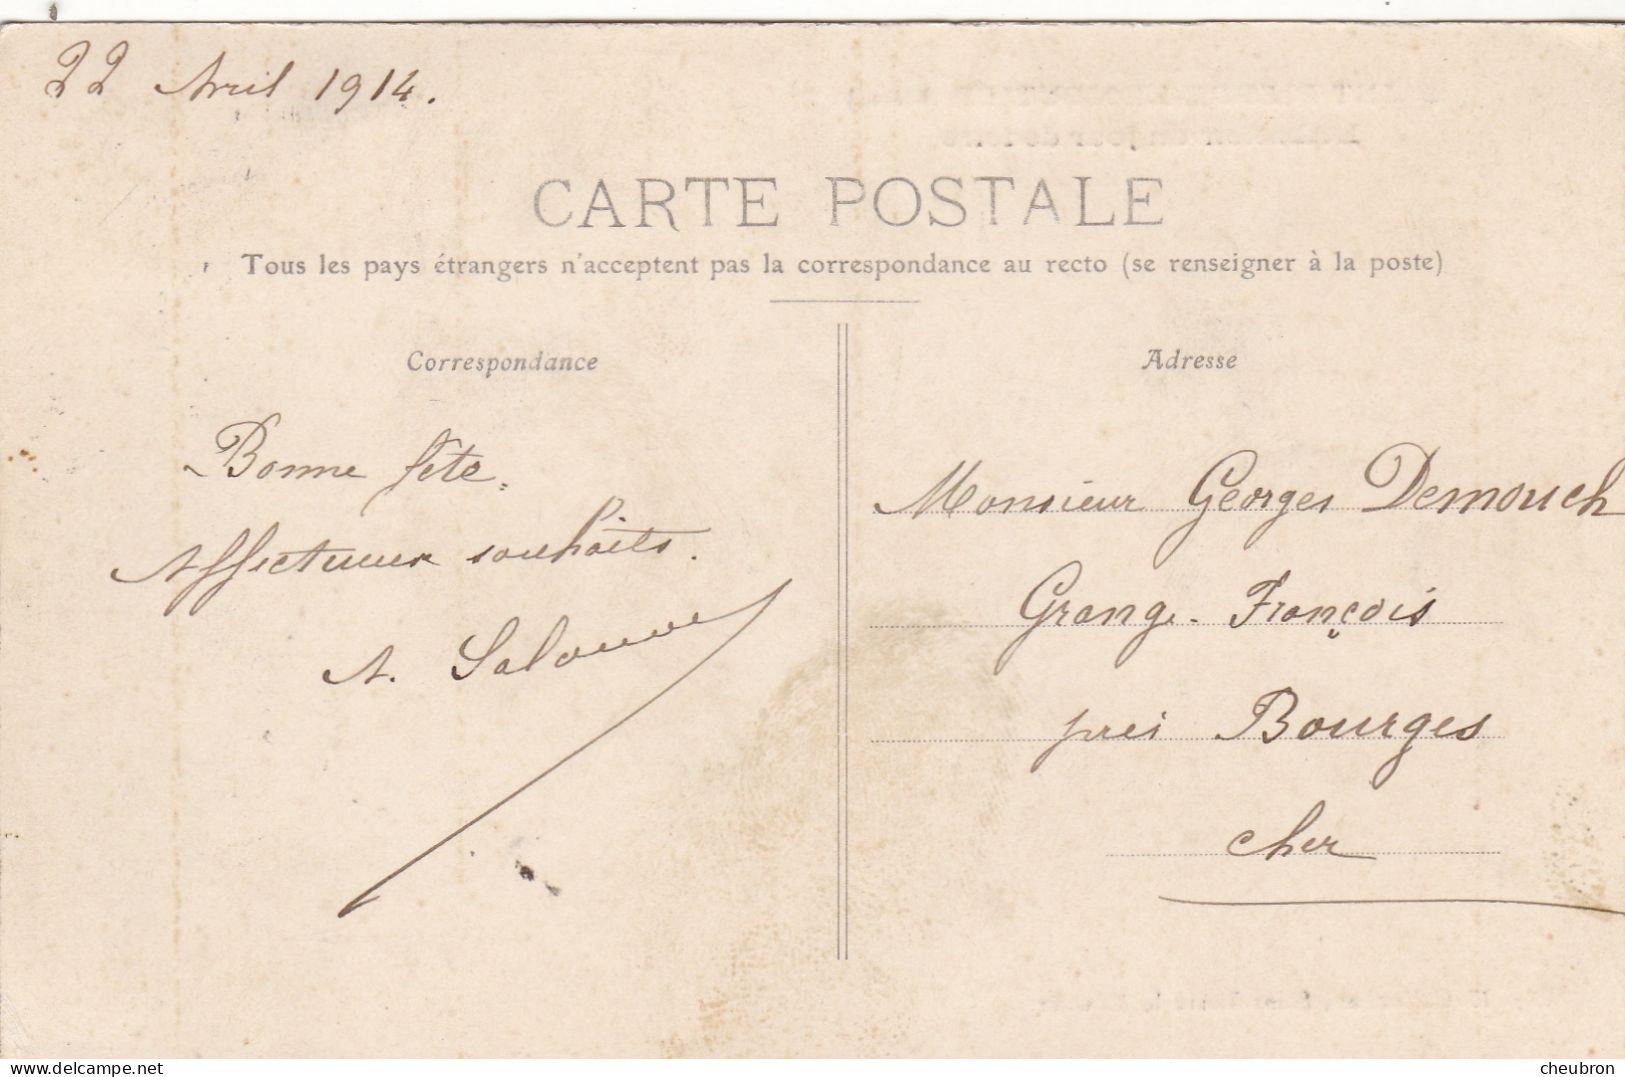 22 Avril 1914.
CARTE POSTALE
Tous les pays étrangers n'acceptent pas la correspondance au recto (se renseigner à la poste)
Correspondance
Bonne fête.
Affectueux souhaits.
A.
Adresse
Monsieur Georges Demouch
Grange-François
près Bourges
Cher
delcampe.net
cheubron